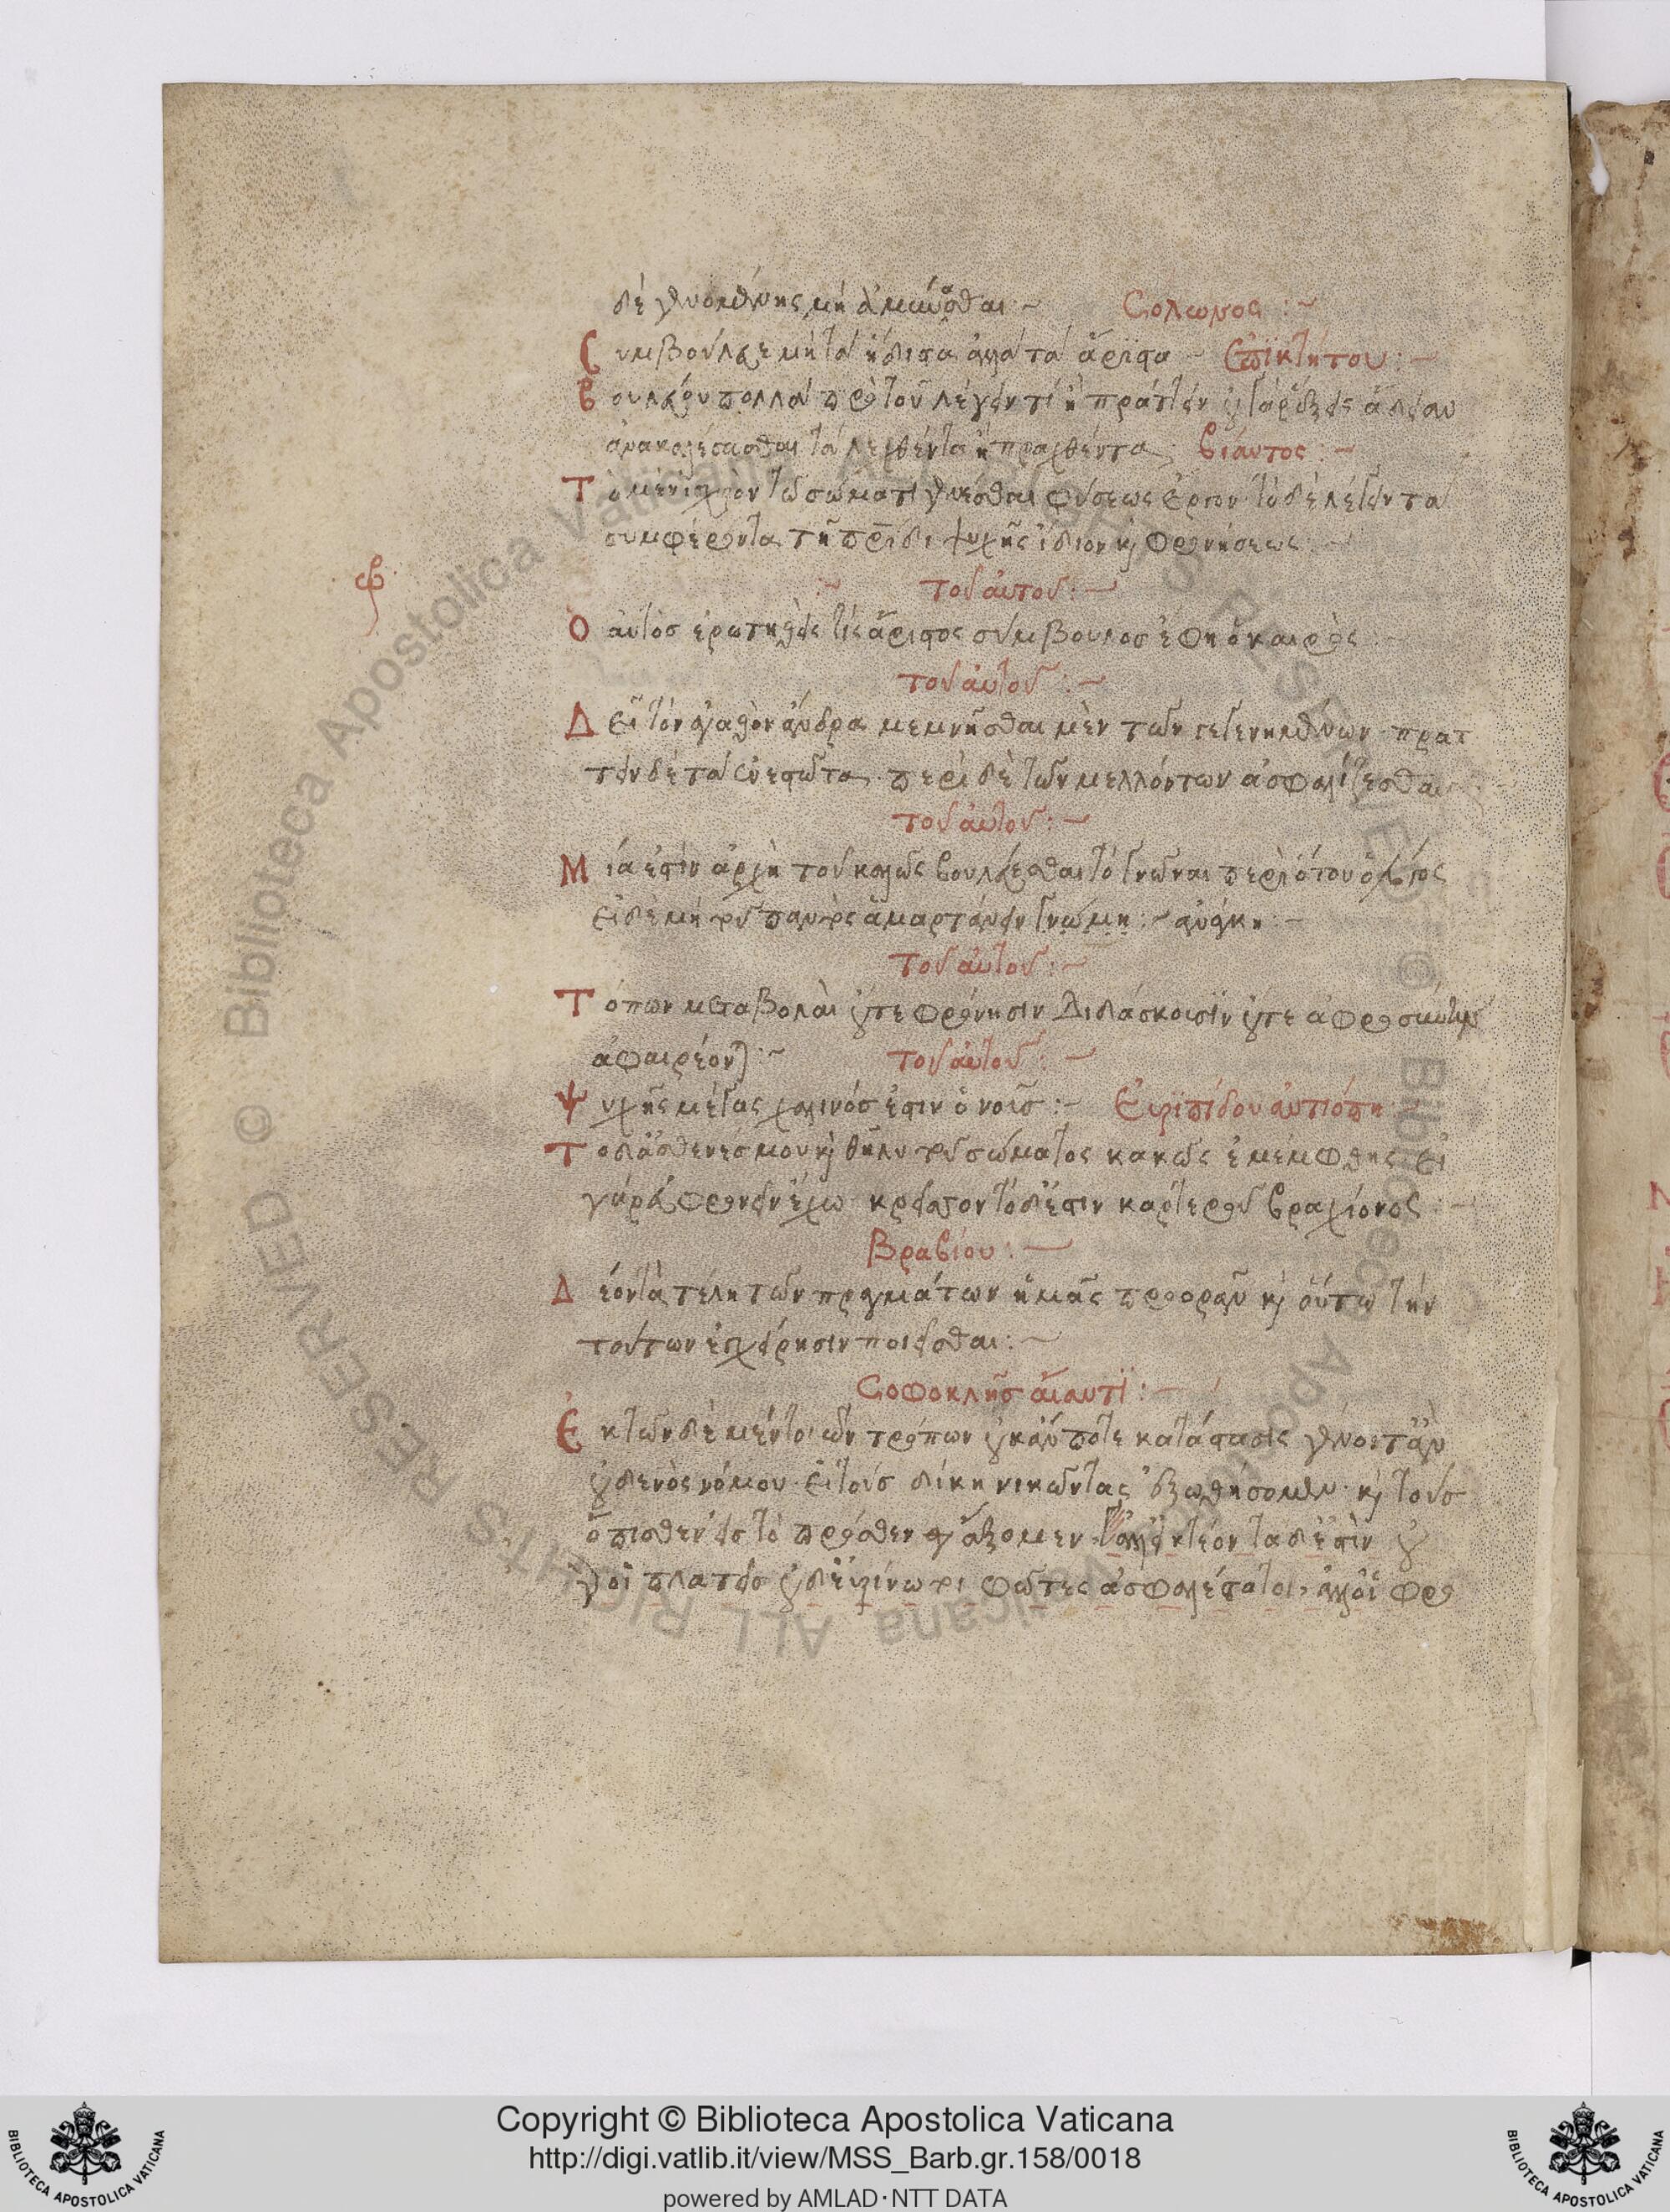 δὲ γινομένης μὴ ἀμύνασθαι:~ Σόλωνος:~
Συμβούλευε μὴ τὰ ἥδιστα ἀλλὰ τὰ ἄριστα ~ Ἐπικτήτου:~
Βουλεύου πολλὰ πρὸ τοῦ λέγειν τί ἢ πράττειν οὐ γὰρ ἕξεις ἄδειαν
ἀνακαλέσασθαι τὰ λεχθέντα ἢ πραχθέντα. Βίαντος:~
Τὸ μὲν ἰσχυρὸν τῷ σώματι γενέσθαι φύσεως ἔργον· τὸ δὲ λέγειν τὰ
συμφέροντα τῇ πρίδι ψυχῆς ἴδιον καὶ φρονήσεως:~
τοῦ αὐτοῦ:~
Ὁ αὐτὸς ἐρωτηθεὶς τίς ἄριστος σύμβουλος ἔφη ὁ καιρός:~
τοῦ αὐτοῦ:~
Δεῖ τὸν ἀγαθὸν ἄνδρα μεμνῆσθαι μὲν τῶν γεγενημένων· πράτ
τειν δὲ τὰ ἐνεστῶτα. περὶ δὲ τῶν μελλόντων ἀσφαλίζεσθαι
τοῦ αὐτοῦ:~
Μία ἐστὶν ἀρχὴ τοῦ καλῶς βουλεύεσθαι τὸ γνῶναι περὶ ὅτου ὁ βίος
εἰ δὲ μὴ τοῦ παντὸς ἁμαρτάνειν γνώμη:~ ἀνάγκη:~
τοῦ αὐτοῦ:~
Τόπων μεταβολαὶ οὔτε φρόνησιν διδάσκουσιν οὔτε ἀφροσύνην
ἀφαιρέονται:~ τοῦ αὐτοῦ:~
Ψυχῆς μέγας χαλινός ἐστιν ὁ νοῦς:~ Εὐριπίδου ἀντιόπη
Τὸ δ' ἀσθενές μου καὶ θῆλυ τοῦ σώματος κακῶς ἐμέμφθης· εἰ
γὰρ εὖ φρονεῖν ἔχω κρεῖσσον τόδ' ἐστὶν καρτεροῦ βραχίονος:~
Βραβίου:~
Δέον τὰ τέλη τῶν πραγμάτων ἡμᾶς προορᾶν καὶ οὕτω τὴν
τούτων ἐγχείρησιν ποιεῖσθαι:~
Σοφοκλῆς αἴαντι:~
Ἐκ τῶνδε μέντοι ὧν τρόπων οὐκ ἄν ποτε κατάστασις γένοιτ' ἂν
οὐδενὸς νόμου· εἰ τοὺς δίκῃ νικῶντας ἐξωθήσομεν· καὶ τοὺς
ὄπισθεν εἰς τὸ πρόσθεν ἄξομεν ἀλλ' εἰρκτέον τάδ' ἐστὶν οὐ
γὰρ οἱ πλατεῖς οὐδ' εὐρύνωτοι φῶτες ἀσφαλέστατοι, ἀλλ' οἱ φρο
Copyright © Biblioteca Apostolica Vaticana
http://digi.vatlib.it/view/MSS_Barb.gr.158/0018
powered by AMLAD·NTT DATA